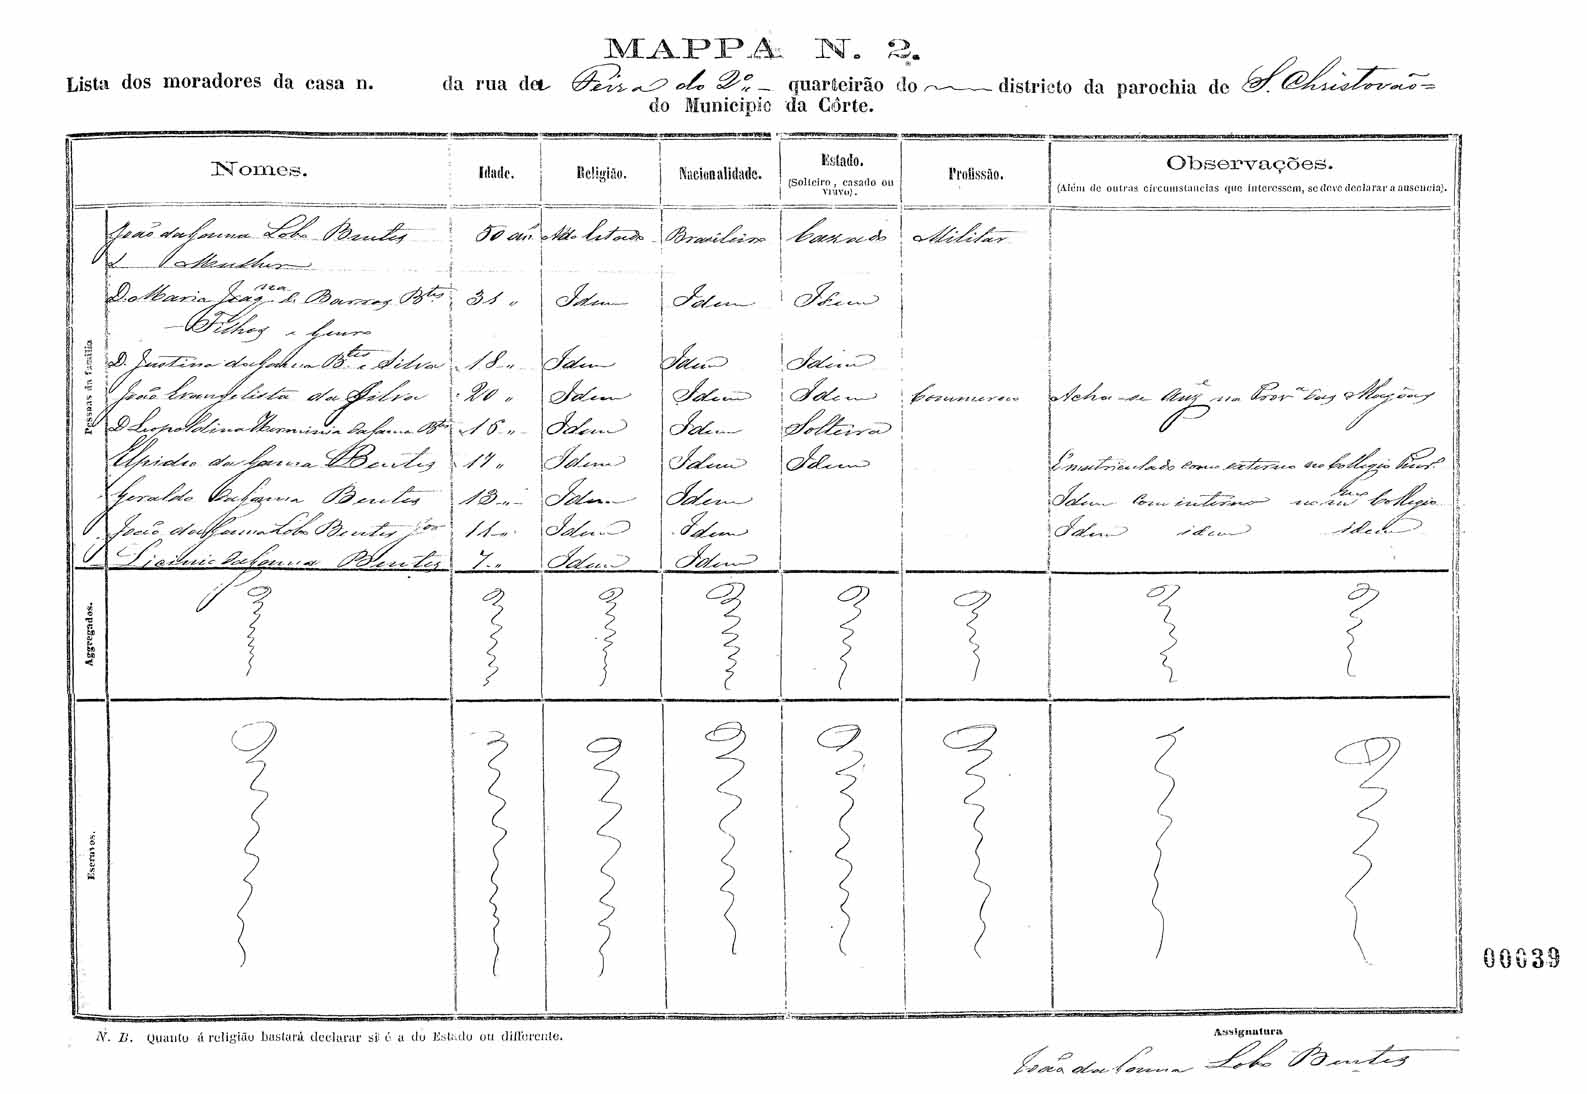 MAPPA N. 2.
Lista dos moradores da casa n. da rua da Feira do 2º quarteirão do districto da parochia de S. Christovão
do Municipio da Côrte.
Nomes. Idade. Religião. Nacionalidade. Estado. (Solteiro, casado ou viuvo). Profissão. Observações. (Além de outras circumstancias que interessem, se deve declarar a ausencia).
Pessoas da familia
João da Gama Lobo Bentes 50 an. A do Estado Brasileiro Casado Militar
Mulher
D. Maria Joaqna de Barros Btes 31 " Idem Idem Idem
Filhos e Genro
D. Justina da Gama Btes e Silva 18 " Idem Idem Idem
João Evangelista da Silva 20 " Idem Idem Idem Commercio Acha-se na Prova das
D. Leopoldina Herminia da Gama Btes 16 " Idem Idem Solteira
Elpidio da Gama Bentes 17 " Idem Idem Idem Ematriculado como externo no Collegio
Geraldo da Gama Bentes 13 " Idem Idem Idem com interno no mesmo Collegio
João da Gama Lobo Bentes Jor 11 " Idem Idem Idem idem idem
Licinio da Gama Bentes 7 " Idem Idem
Aggregados.
Escravos.
00039
N. B. Quanto á religião bastará declarar si é a do Estado ou differente.
Assignatura
João da Gama Lobo Bentes